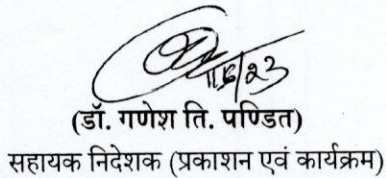 (डॉ. गणेश ति. पण्डित)
सहायक निदेशक (प्रकाशन एवं कार्यक्रम)